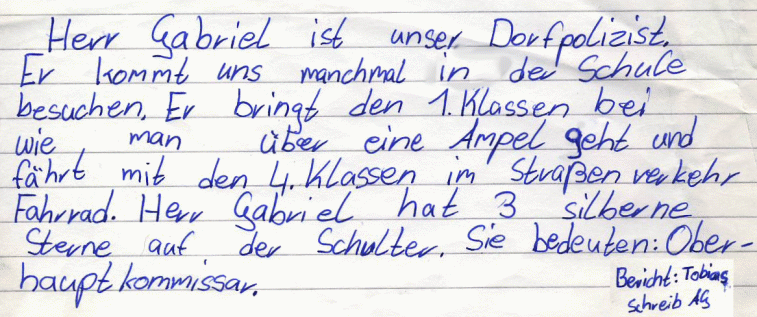 Herr Gabriel ist unser Dorfpolizist.
Er kommt uns manchmal in der Schule
besuchen. Er bringt den 1. Klassen bei
wie man über eine Ampel geht und
fährt mit den 4. Klassen im Straßenverkehr
Fahrrad. Herr Gabriel hat 3 silberne
Sterne auf der Schulter. Sie bedeuten: Ober-
hauptkommissar.
Bericht: Tobias
Schreib AG